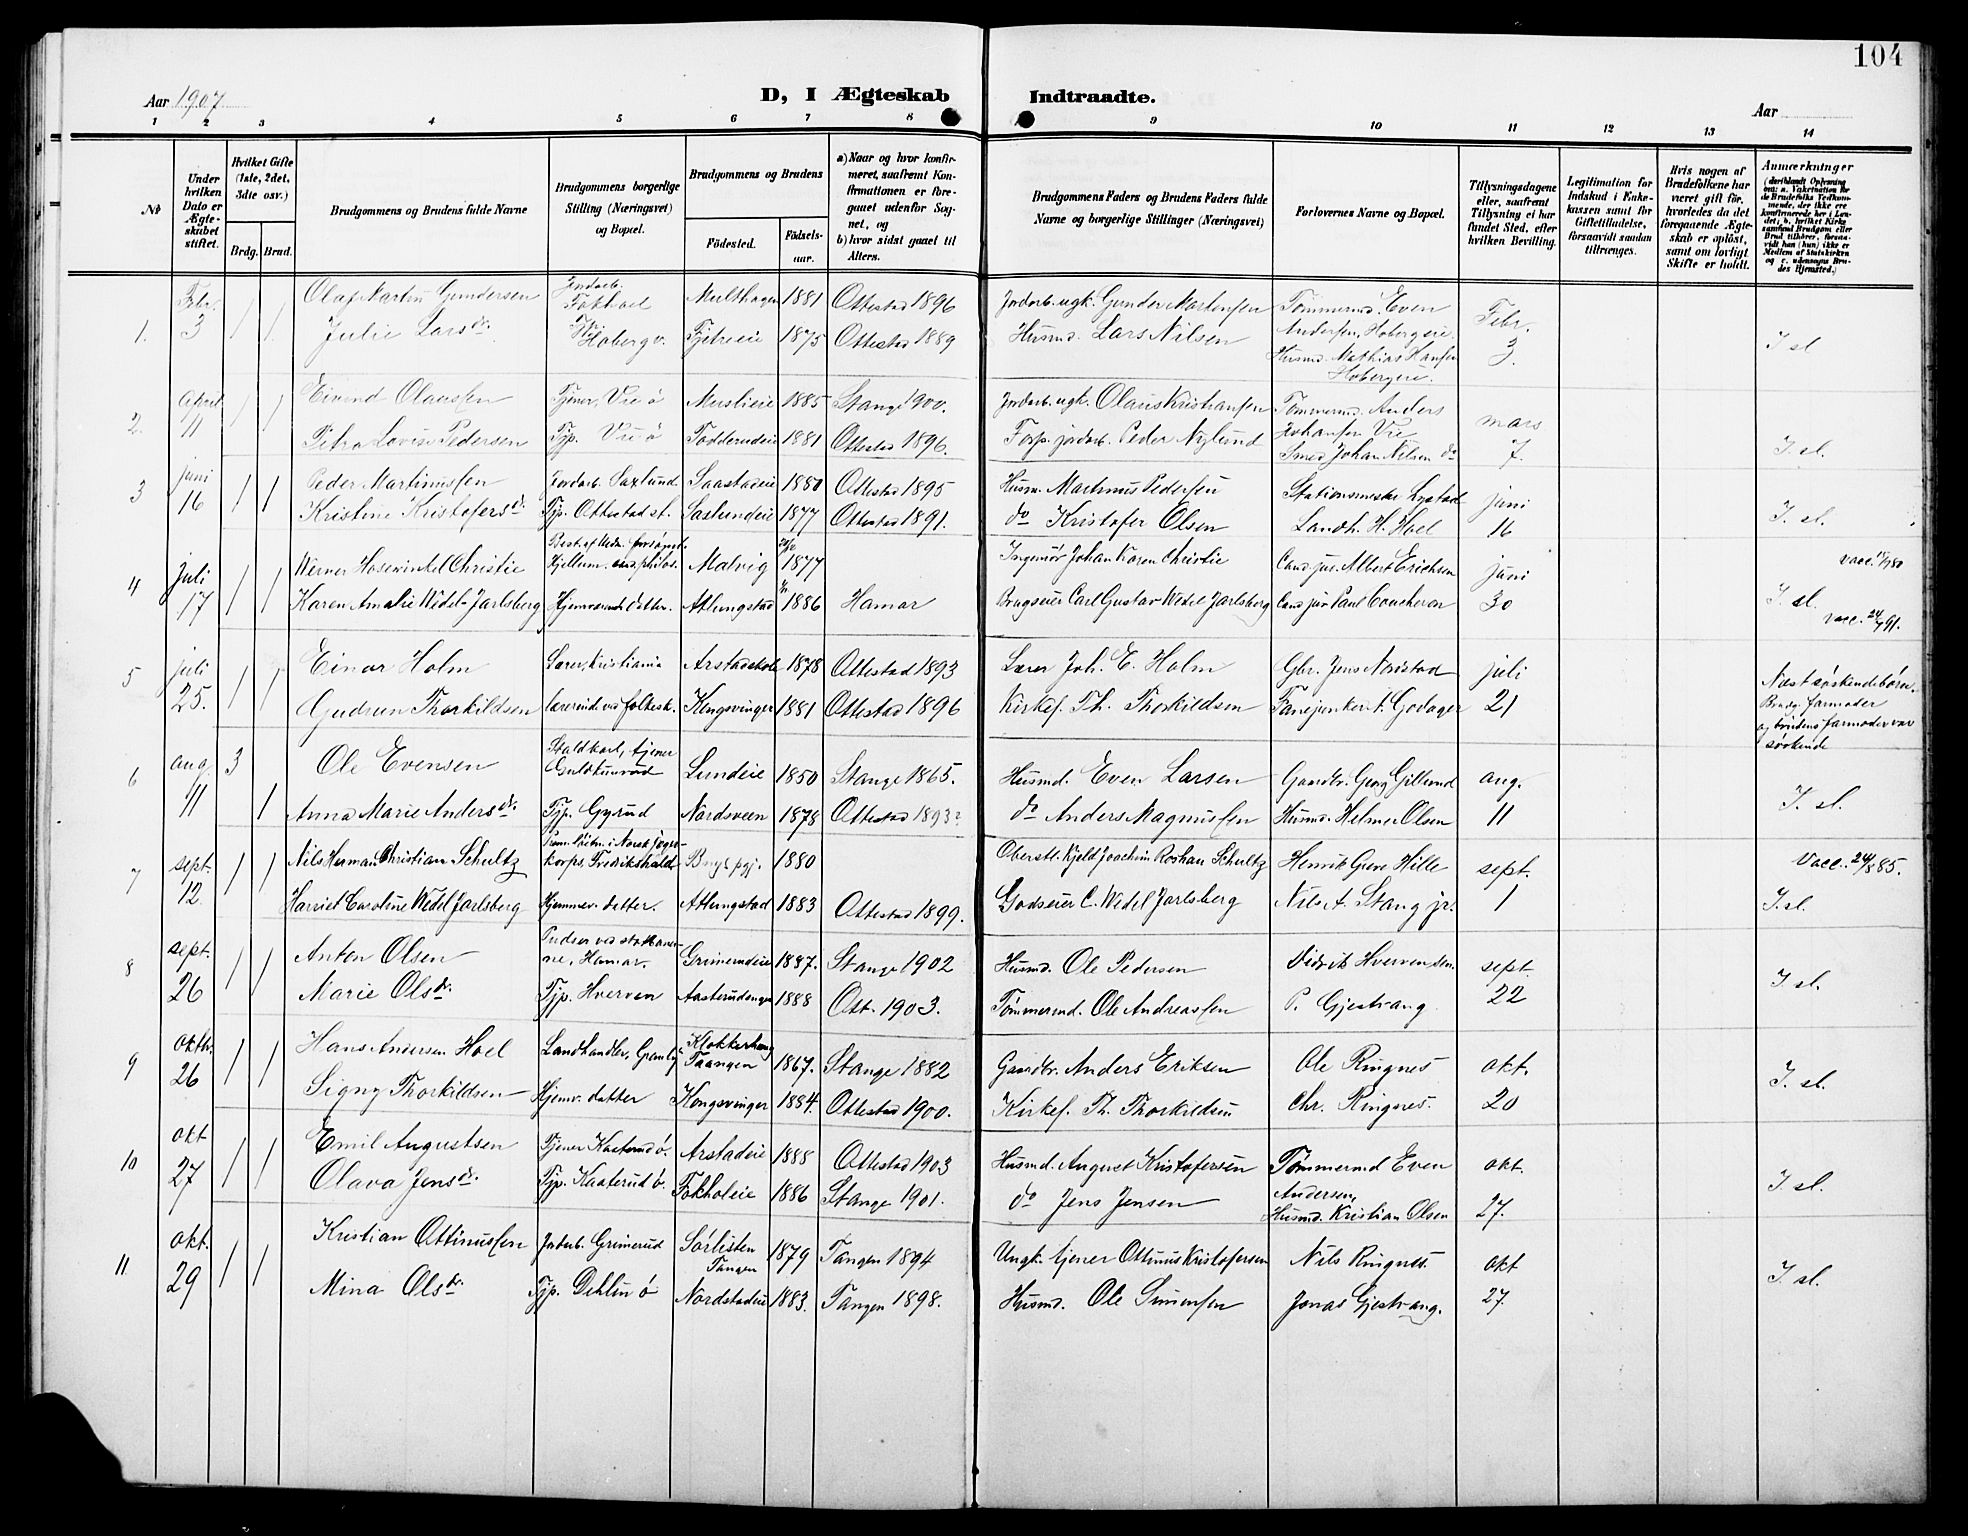 104
Aar 1907
D, I Ægteskab Indtraadte.
Aar
1 2 3 4 5 6 7 8 9 10 11 12 13 14
№
Under hvilken Dato er Ægteskabet stiftet.
Hvilket Gifte (1ste, 2det, 3die osv.)
Brdg. Brud.
Brudgommens og Brudens fulde Navne
Brudgommens borgerlige Stilling (Næringsvei) og Bopæl.
Brudgommens og Brudens
Fødested. Fødselsaar.
a) Naar og hvor konfirmeret, saafremt Konfirmationen er foregaaet udenfor Sognet, og
b) hvor sidst gaaet til Alters.
Brudgommens Faders og Brudens Faders fulde Navne og borgerlige Stillinger (Næringsvei)
Forlovernes Navne og Bopæl.
Tillysningsdagene eller, saafremt Tillysning ei har fundet Sted, efter hvilken Bevilling.
Legitimation for Indskud i Enkekassen samt for Giftetilladelse, forsaavidt saadan tiltrænges.
Hvis nogen af Brudefolkene har været gift før, hvorledes da det foregaaende Ægteskab er opløst, samt om lovligt Skifte er holdt.
Anmærkninger
(deriblandt Oplysning om: a. Vakcination for de Brudefolks Vedkommende, der ikke ere konfirmerede her i Landet; b. hvilket Kirkesamfund Brudgom eller Brud tilhører, forsaavidt han (hun) ikke er Medlem af Statskirken og c. udensogns Brudes Hjemsted.)
1. Febr. 3 1 1 Olaf Martin Gundersen Jordarb. Fokhoel 1881 Ottestad 1896 Jordarb. ugk. Gunder Martensen Tømmermd. Even Andersen, Hobergeie. Febr. 3.
Julie Larsdr. Hoberg v. Fjetreeie 1875 Ottestad 1889 Husmd. Lars Nilsen Husmd. Mathias Hansen Hobergeie. I sl
2. April 11 1 1 Eivind Olaussen Tjener, Vie ø 1885 Stange 1900. Jordarb. ugk. Olaus Kristiansen Tømmermd. Anders Johansen Vie mars 7.
Petra Lovise Pedersen Tjp. Vie ø 1881 Ottestad 1896. Forp. jordarb. Peder Nylund Smed Johan Nilsen do I sl.
3 juni 16 1 1 Peder Martinussen Jordarb. Saxlund Saastadeie 1880 Ottestad 1895 Husm. Martinus Pedersen Stationsmester Lystad juni 16
Kristine Kristofersd. Tjp. Ottestad st. Saxlundeie 1877 Ottestad 1891. do Kristofer Olsen Landh. H. Hoel I sl.
4 juli 17 1 1 Werner Hosewinkel Christie Hjellum, cand. philos. Malvig 1877 Ingeniør Johan Koren Christie Cand jur. Albert Erichsen juni 30
Karen Amalie Wedel-Jarlsberg Hjemværende datter. Atlungstad 1886 Hamar Brugseier Carl Gustav Wedel Jarlsberg Cand jur Paul Coucheron I sl.
5 juli 25. 1 1 Einar Holm Lærer, Kristiania Arstadskole 1878 Ottestad 1893 Lærer Joh. E. Holm Gbr. Jens Norstad juli 21
Gudrun Thorkildsen lærerinde ved folkesk. Kongsvinger 1881 Ottestad 1896 Kirkes. Th. Thorkildsen Fanejunker A. Godager
Næstsøskendebörn. Brudg. farmoder og brudens farmoder var søskende
6 aug. 11 3 Ole Evensen Staldkarl, tjener Guldkunrud Lundeie 1850 Stange 1865. Husmd. Even Larsen Gaardbr. Georg Gillund aug. 11
1 Anna Marie Andersdr. Tjp. Gyrud Nordsveen 1878 Ottestad 1893? do Anders Magnussen Husmd. Helmer Olsen I. sl.
7 sept. 12. 1 1 Nils Herman Christian Schultz Prem. løitn. i Norsk jægerkorps, Fredrikshald 1880 Oberstl. Kjeld Joachim Roshau Schultz Henrik Greve Hille sept. 1 Vacc. 24/8 85.
Harriet Caroline Wedel Jarlsberg Hjemmev. datter. Atlungstad 1883 Ottestad 1899. Godseier C. Wedel Jarlsberg Nils A. Stang jr. I. sl.
8 sept. 26 1 1 Anton Olsen Pudser ved stathanerne, Hamar. Grimerudeie 1887. Stange 1902 Husmd. Ole Pedersen Didrik Hverven sen. sept. 22
Marie Olsdr. Tjp. Hverven Aasterudengen 1888 Ott. 1903. Tømmermd. Ole Andreassen P. Gjestvang I sl.
9 oktbr. 26 1 1 Hans Andersen Hoel Landhandler, Granly Klokkerhaug Taangen 1867. Stange 1882 Gaardbr. Anders Eriksen Ole Ringnes okt. 20
Signy Thorkildsen Hjemv. datter Kongsvinger 1884. Ottestad 1900. Kirkes. Th. Thorkildsen Chr. Ringnes. I. sl.
10 okt 27 1 1 Emil Augustsen Tjener Kaaterud ø. Arstadeie 1888 Ottestad 1903 Husmd. August Kristofersen Tømmermd Even Andersen, okt. 27.
Olava Jensd. Tjp. Kaaterud ø. Fokholeie 1886 Stange 1901. do Jens Jensen Husmd. Kristian Olsen I sl.
11 okt. 29 1 1 Kristian Ottinussen Jordarb. Grimerud Sørlisten Tangen 1879 Tangen 1894 Ungk. tjener Ottinus Kristofersen Nils Ringnes. okt 27.
Mina Olsdr. Tjp. Dehlin ø Nordstadeie 1883. Tangen 1898. Husmd. Ole Simensen Jonas Gjestvang. I sl.